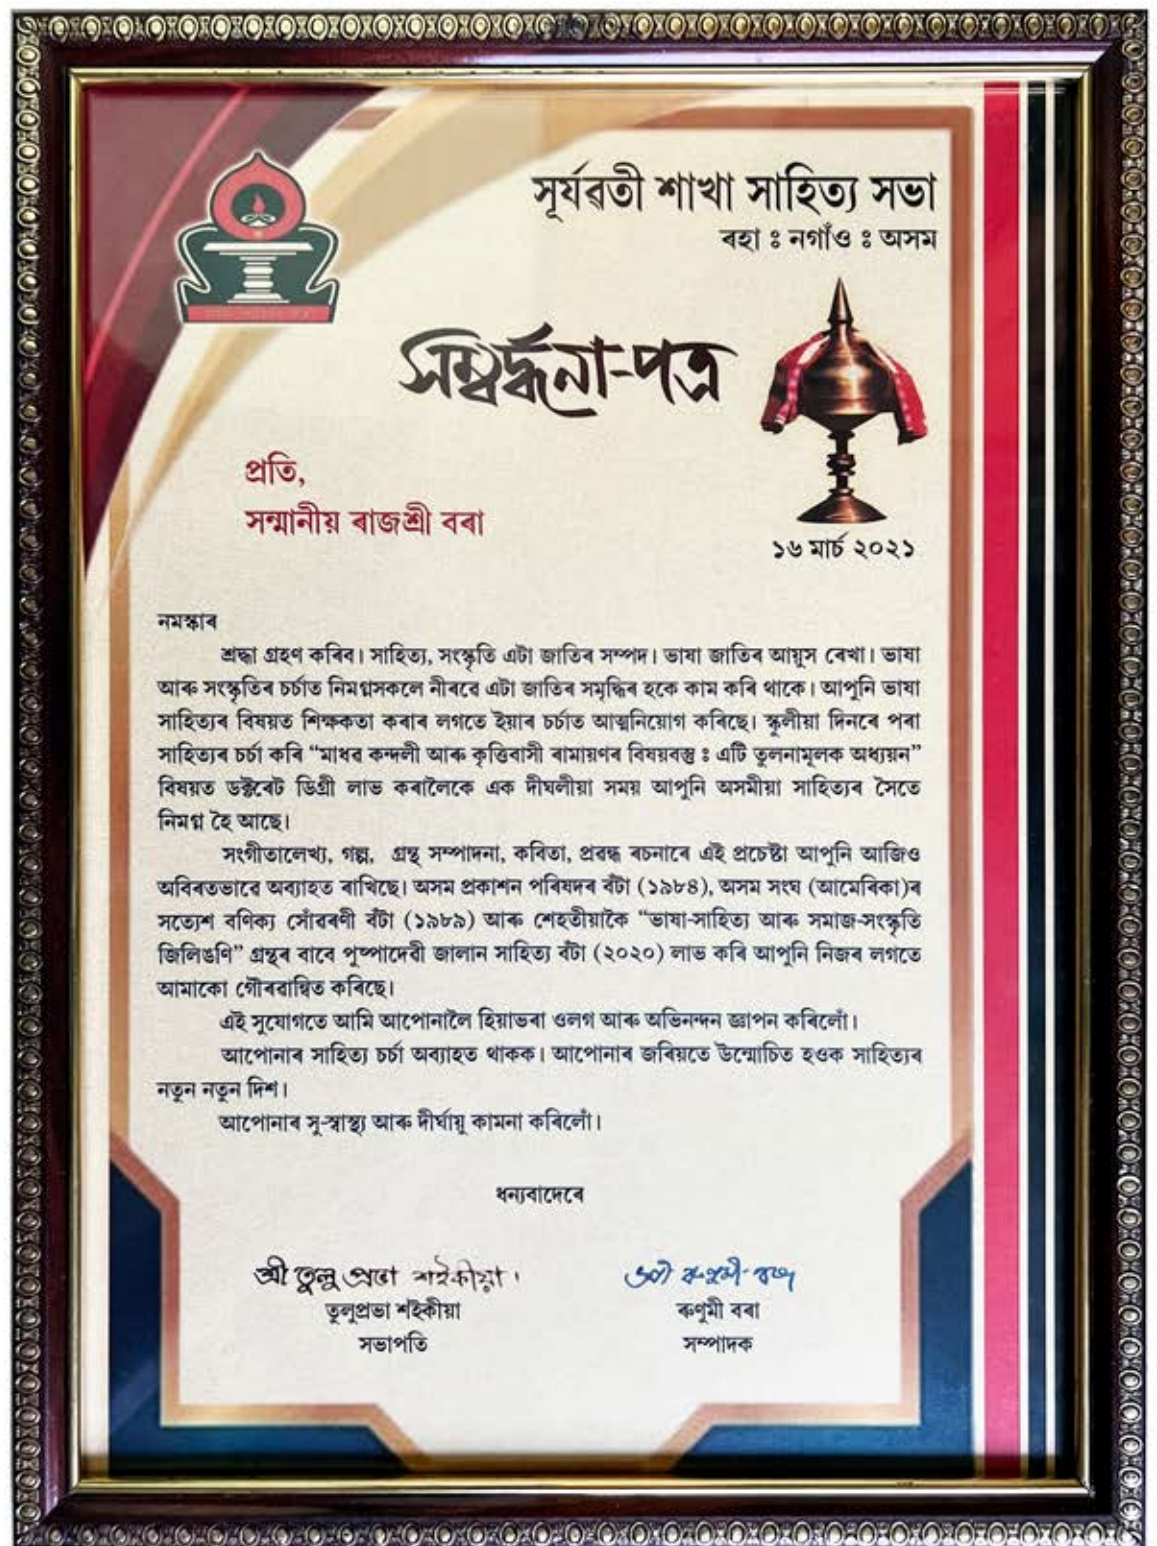 সূৰ্যৱতী শাখা সাহিত্য সভা
ৰহা ঃ নগাঁও ঃ অসম
সম্বৰ্দ্ধনা-পত্ৰ
প্ৰতি,
সন্মানীয় ৰাজশ্ৰী বৰা
১৬ মাৰ্চ ২০২১
নমস্কাৰ
শ্ৰদ্ধা গ্ৰহণ কৰিব। সাহিত্য, সংস্কৃতি এটা জাতিৰ সম্পদ। ভাষা জাতিৰ আয়ুস ৰেখা। ভাষা
আৰু সংস্কৃতিৰ চৰ্চাত নিমগ্নসকলে নীৰৱে এটা জাতিৰ সমৃদ্ধিৰ হকে কাম কৰি থাকে। আপুনি ভাষা
সাহিত্যৰ বিষয়ত শিক্ষকতা কৰাৰ লগতে ইয়াৰ চৰ্চাত আত্মনিয়োগ কৰিছে। স্কুলীয়া দিনৰে পৰা
সাহিত্যৰ চৰ্চা কৰি “মাধৱ কন্দলী আৰু কৃত্তিবাসী ৰামায়ণৰ বিষয়বস্তু ঃ এটি তুলনামূলক অধ্যয়ন”
বিষয়ত ডক্টৰেট ডিগ্ৰী লাভ কৰালৈকে এক দীঘলীয়া সময় আপুনি অসমীয়া সাহিত্যৰ সৈতে
নিমগ্ন হৈ আছে।
সংগীতালেখ্য, গল্প, গ্ৰন্থ সম্পাদনা, কবিতা, প্ৰৱন্ধ ৰচনাৰে এই প্ৰচেষ্টা আপুনি আজিও
অবিৰতভাৱে অব্যাহত ৰাখিছে। অসম প্ৰকাশন পৰিষদৰ বঁটা (১৯৮৪), অসম সংঘ (আমেৰিকা)ৰ
সত্যেশ বণিক্য সোঁৱৰণী বঁটা (১৯৮৯) আৰু শেহতীয়াকৈ “ভাষা-সাহিত্য আৰু সমাজ-সংস্কৃতি
জিলিঙণি” গ্ৰন্থৰ বাবে পুষ্পাদেৱী জালান সাহিত্য বঁটা (২০২০) লাভ কৰি আপুনি নিজৰ লগতে
আমাকো গৌৰৱান্বিত কৰিছে।
এই সুযোগতে আমি আপোনালৈ হিয়াভৰা ওলগ আৰু অভিনন্দন জ্ঞাপন কৰিলোঁ।
আপোনাৰ সাহিত্য চৰ্চা অব্যাহত থাকক। আপোনাৰ জৰিয়তে উন্মোচিত হওক সাহিত্যৰ
নতুন নতুন দিশ।
আপোনাৰ সু-স্বাস্থ্য আৰু দীৰ্ঘায়ু কামনা কৰিলোঁ।
ধন্যবাদেৰে
শ্ৰী তুলু প্ৰভা শইকীয়া।
তুলুপ্ৰভা শইকীয়া
ৰুণুমী বৰা
সভাপতি
সম্পাদক